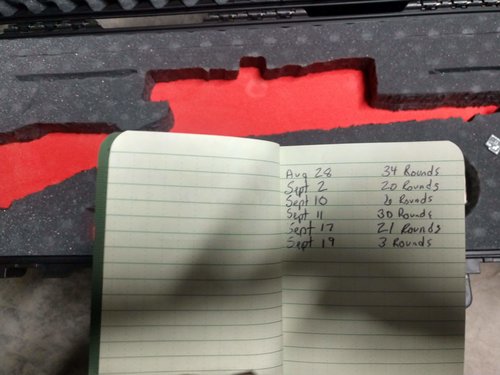 Aug 28 34 Rounds
Sept 2 20 Rounds
Sept 10 Rounds
Sept 11 30 Rounds
Sept 17 21 Rounds
Sept 19 3 Rounds